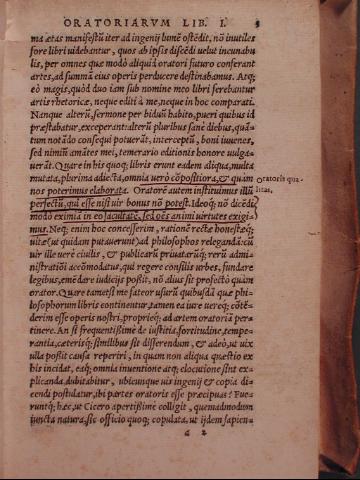 ORATORIARVM LIB. I. 5
ma ætas manifestũ iter ad ingenij lumẽ ostẽdit, nõ inutiles
fore libri uidebantur, quos ab ipsis discẽdi uelut incunabu
lis, per omnes quæ modò aliquid oratori futuro conferant
artes, ad summã eius operis perducere destinabamus. Atq;
eò magis, quòd duo iam sub nomine meo libri ferebantur
artis rhetoricæ, neque editi à me, neque in hoc comparati.
Nanque alterũ, sermone per biduũ habito, pueri quibus id
præstabatur, exceperant: alterũ pluribus sanè diebus, quã-
tum notãdo consequi potuerãt, interceptũ, boni iuuenes,
sed nimiũ amãtes mei, temerario editionis honore uulga-
uerãt. Quare in his quoq; libris erunt eadem aliqua, multa
mutata, plurima adiecta, omnia uerò cõpositiora, & quam
nos poterimus elaborata. Oratorẽ autem instituimus illũ
Oratoris qua
litas.
perfectũ, qui esse nisi uir bonus nõ potest. Ideoq; nõ dicẽdi
modò eximiã in eo facultatẽ, sed oẽs animi uirtutes exigi-
mus. Neq; enim hoc concesserim, rationẽ rectæ honestæq;
uitæ (ut quidam putauerunt) ad philosophos relegandã: cũ
uir ille uerè ciuilis, & publicarũ priuatarũq; rerũ admi-
nistrationi accõmodatus, qui regere consilijs urbes, fundare
legibus, emẽdare iudicijs possit, nõ alius sit profectò quàm
orator. Quare tametsi me fateor usurũ quibusdã quæ phi-
losophorum libris continentur, tamen ea iure uereq; cõtẽ-
derim esse operis nostri, proprieq; ad artem oratoriã per-
tinere. An si frequentissimè de iustitia, fortitudine, tempe-
rantia, cæterisq; similibus sit disserendum, & adeò, ut uix
ulla possit causa reperiri, in quam non aliqua quæstio ex
his incidat, eaq; omnia inuentione atq; elocutione sint ex-
plicanda, dubitabitur, ubicunque uis ingenij & copia di-
cendi postulatur, ibi partes oratoris esse præcipuas? Fue-
runtq; hæc, ut Cicero apertissimè colligit, quemadmodum
iuncta natura, sic officio quoq; copulata, ut ijdem sapien-
a 2